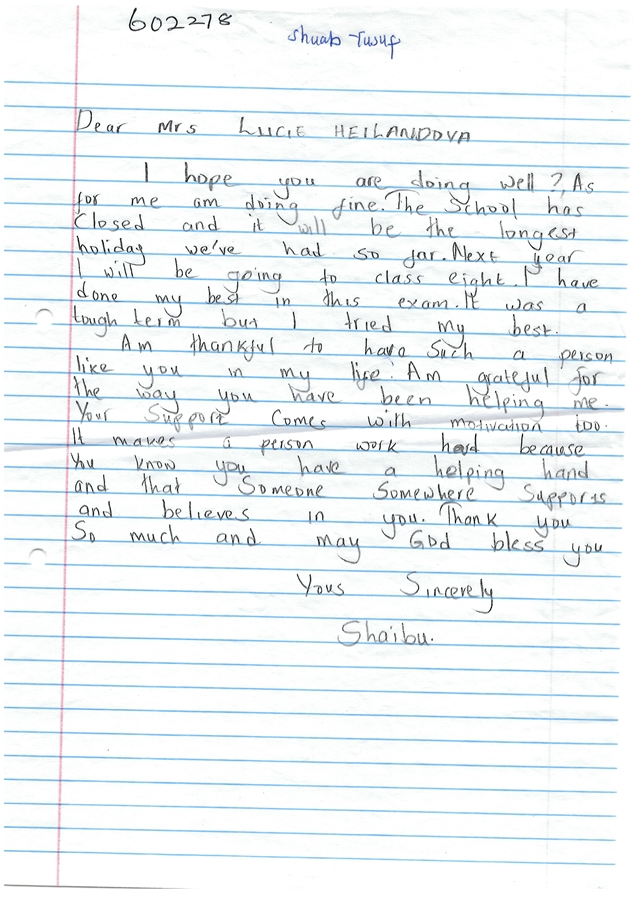 602278
Shuab Yusuf
Dear Mrs LUCIE HEILANDOVA
I hope you are doing well?, As
for me am doing fine. The School has
Closed and it will be the longest
holiday we've had so far. Next year
I will be going to class eight. I have
done my best in this exam. It was a
tough term but I tried my best.
Am thankful to have such a person
like you in my life. Am grateful for
the way you have been helping me.
Your Support Comes with motivation too.
It makes a person work hard because
You know you have a helping hand
and that Someone Somewhere Supports
and believes in you. Thank you
So much and may God bless you
Yous Sincerely
Shaibu.